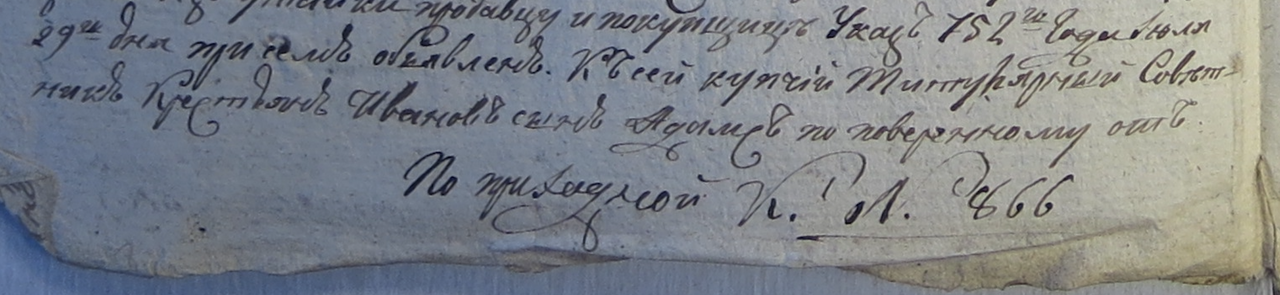 продавцу и покупщицѣ Указъ 752го Года Июля
29го дня присемъ объявленъ. Къ сей купчій Титулярный Совѣт=
никъ Крестьянъ Ивановъ сынъ Адамсъ по поверенному отъ
По приходной К. N. 866